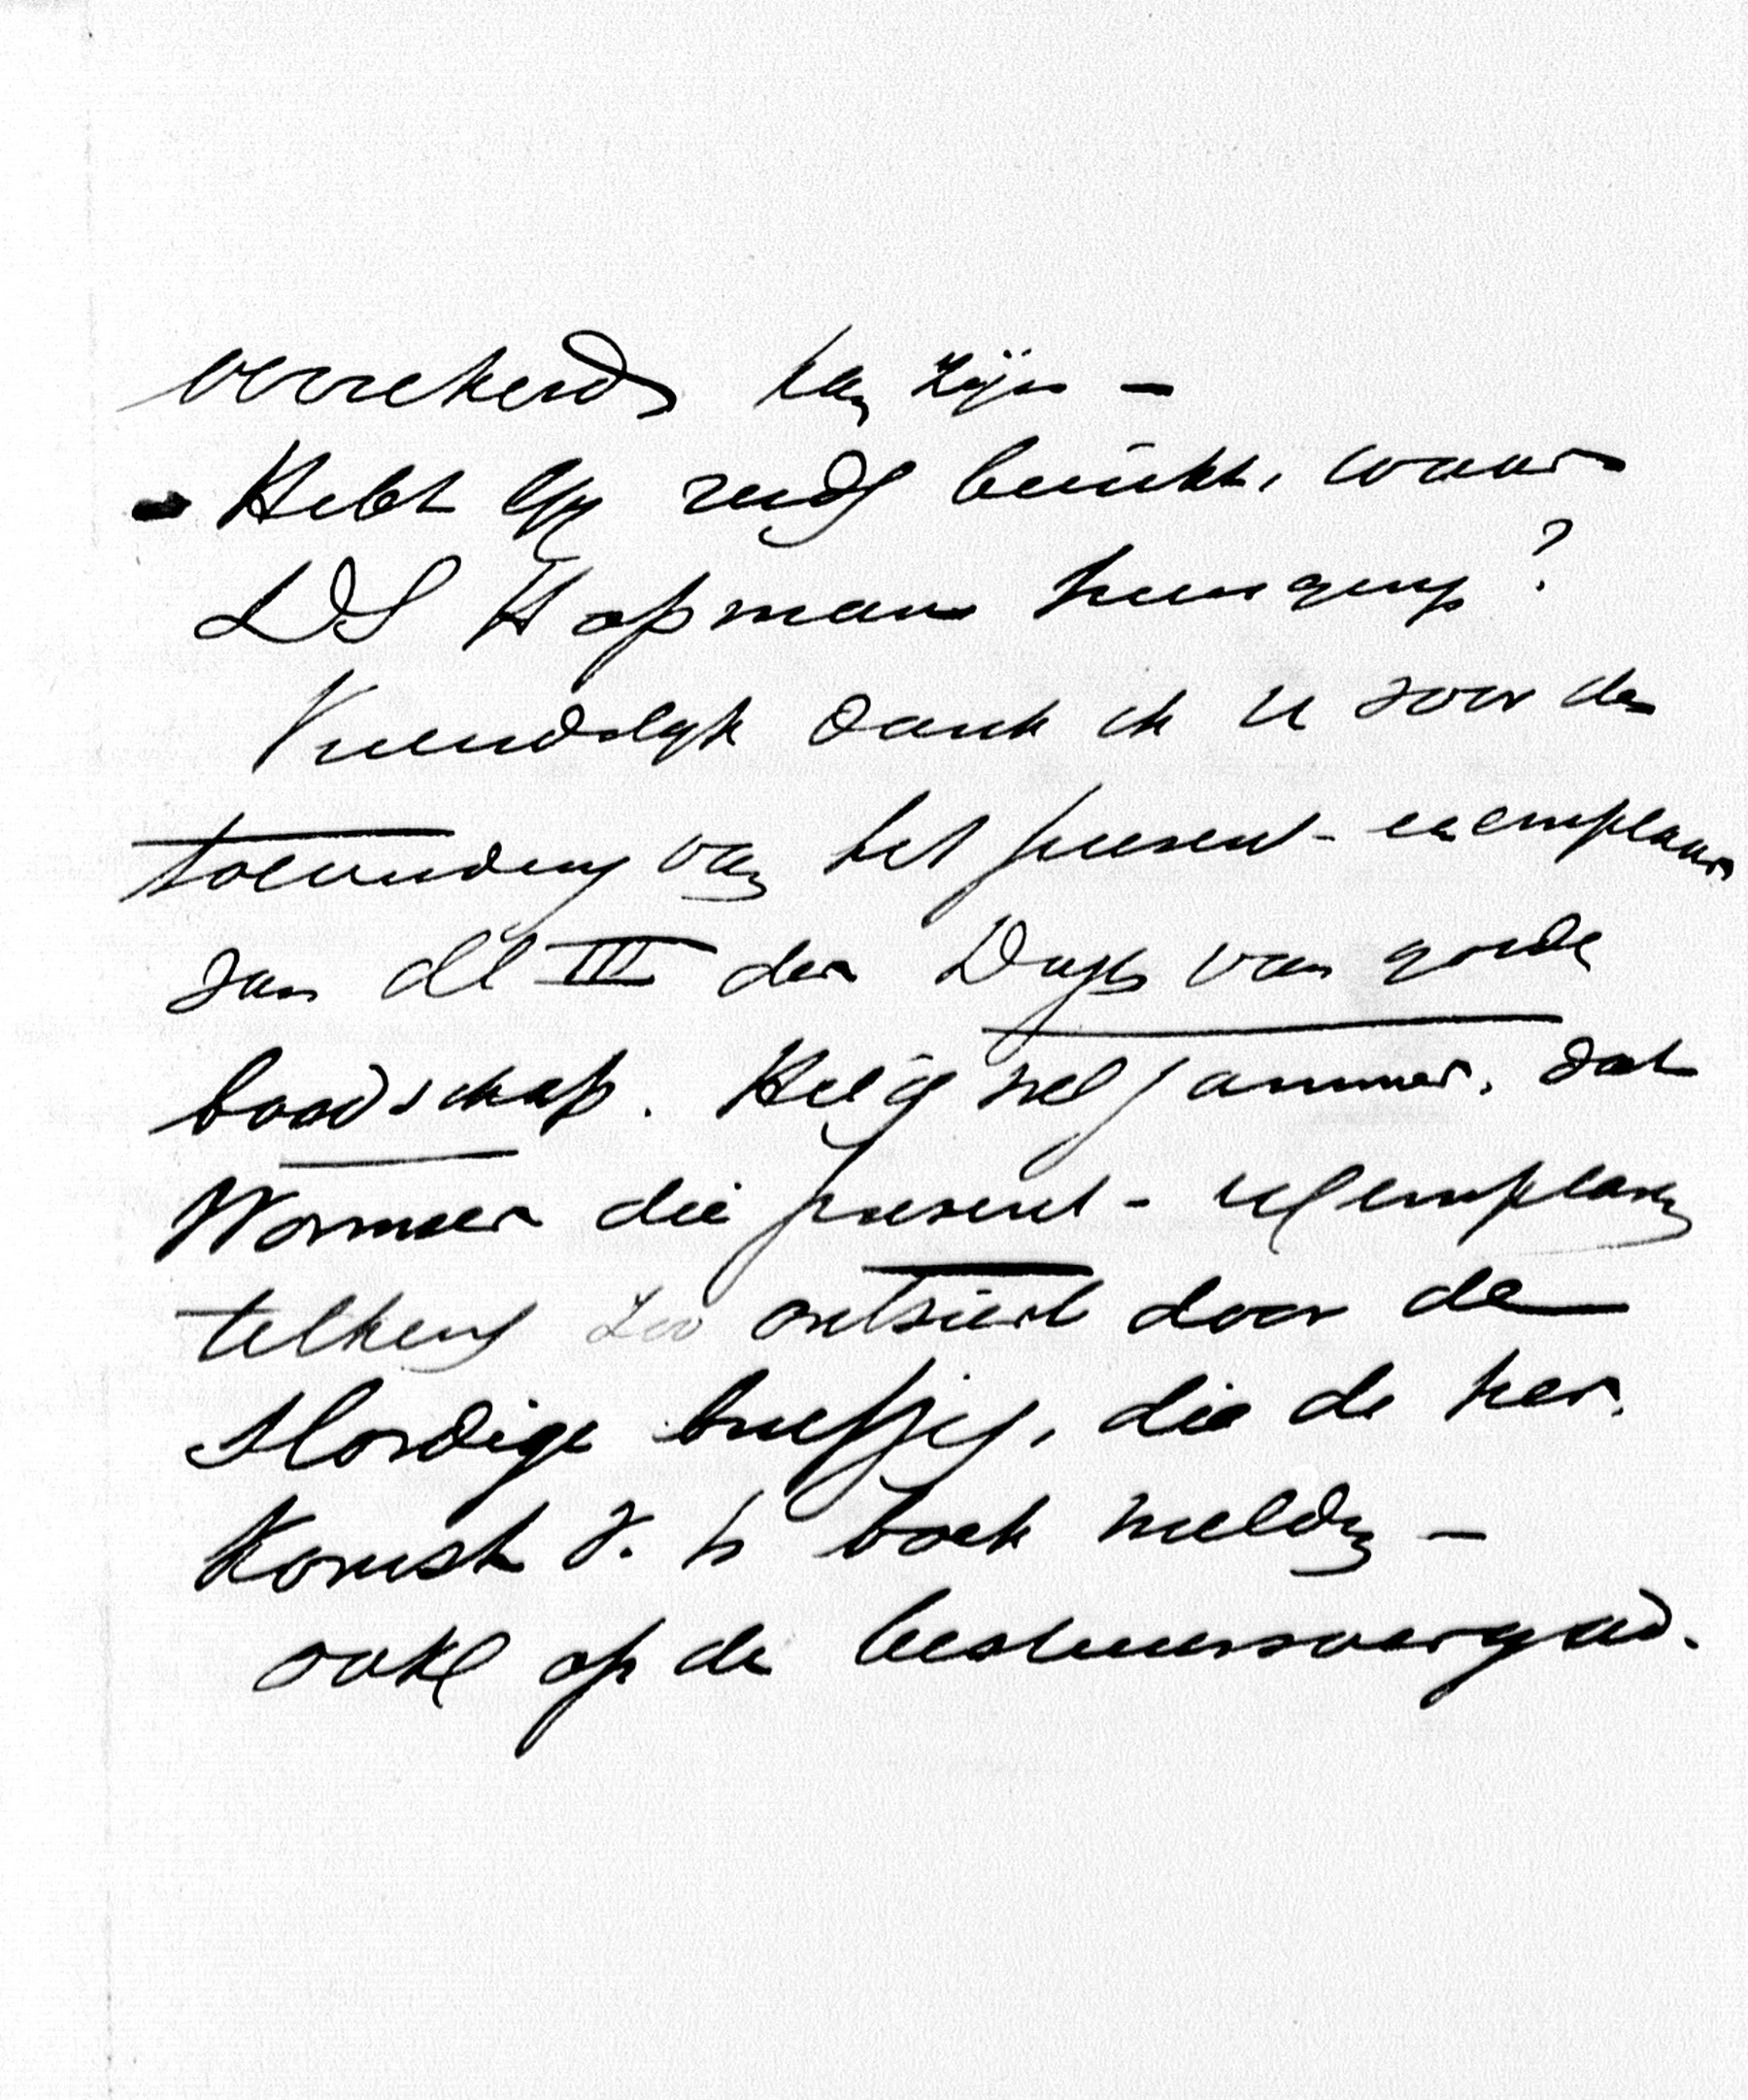 verzekerd kan zijn –
Hebt gij reeds bericht, waar
DS Hopman heenging?
Vriendelijk dank ik U voor de
toezending van het present-exemplaar
van dl III der Dags van goede
boodschap. Het is wel jammer, dat
Wormser die present-exemplaren
telkens zoo ontsiert door de
slordige briefjes, die de her-
komst v. h boek melden –
ook op de bestuursvergad.